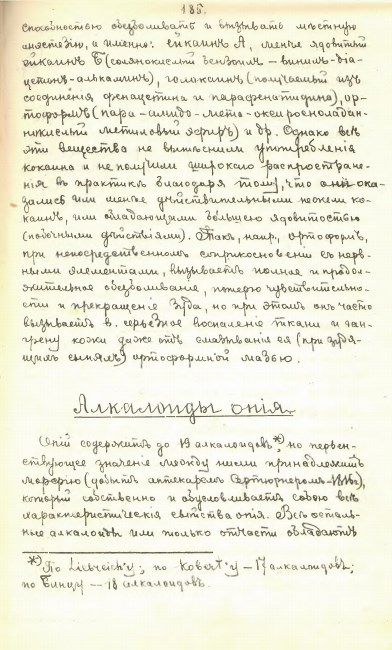 185.
способностью обезболивать и вызывать мѣстную
анестезію, а именно: эйкаинъ А, менѣе ядовитый
эйкаинъ Б (солянокислый бензоилъ-винилъ-діа-
цетонъ-алькаминъ), голокаинъ (получаемый изъ
соединенія фенацетина и парафенатидина), ор-
тоформъ (пара-амидо-мета-окси
метиловый эфиръ) и др. Однако всѣ
эти вещества не вытѣснили употребленія
кокаина и не получили широкаго распростране-
нія въ практикѣ благодаря тому, что они ока-
зались или менѣе дѣйствительными нежели ко-
каинъ, или обладающими большею ядовитостью
(побочными дѣйствіями). Такъ, напр., ортоформъ,
при непосредственномъ соприкосновеніи съ нерв-
ными элементами, вызываетъ полное и продол-
жительное обезболиваніе, потерю чувствительно-
сти и прекращеніе зуда, но при этомъ онъ часто
вызываетъ и серьезное воспаленіе ткани и ган-
грену кожи даже отъ смазыванія ея (при зудя-
щихъ сыпяхъ) ортоформной мазью.
Алкалоиды опія.
Опій содержитъ до 19 алкалоидовъ *), но первен-
ствующее значеніе между ними принадлежитъ
морфію (добытъ аптекаремъ Сертюрнеромъ),
который собственно и обусловливаетъ собою всѣ
характеристическія свойства опія. Всѣ осталь-
ные алкалоиды или только отчасти обладаютъ
*) По Liebreich'у; по Kobert'у — 17 алкалоидовъ;
по Бинцу — 18 алкалоидовъ.